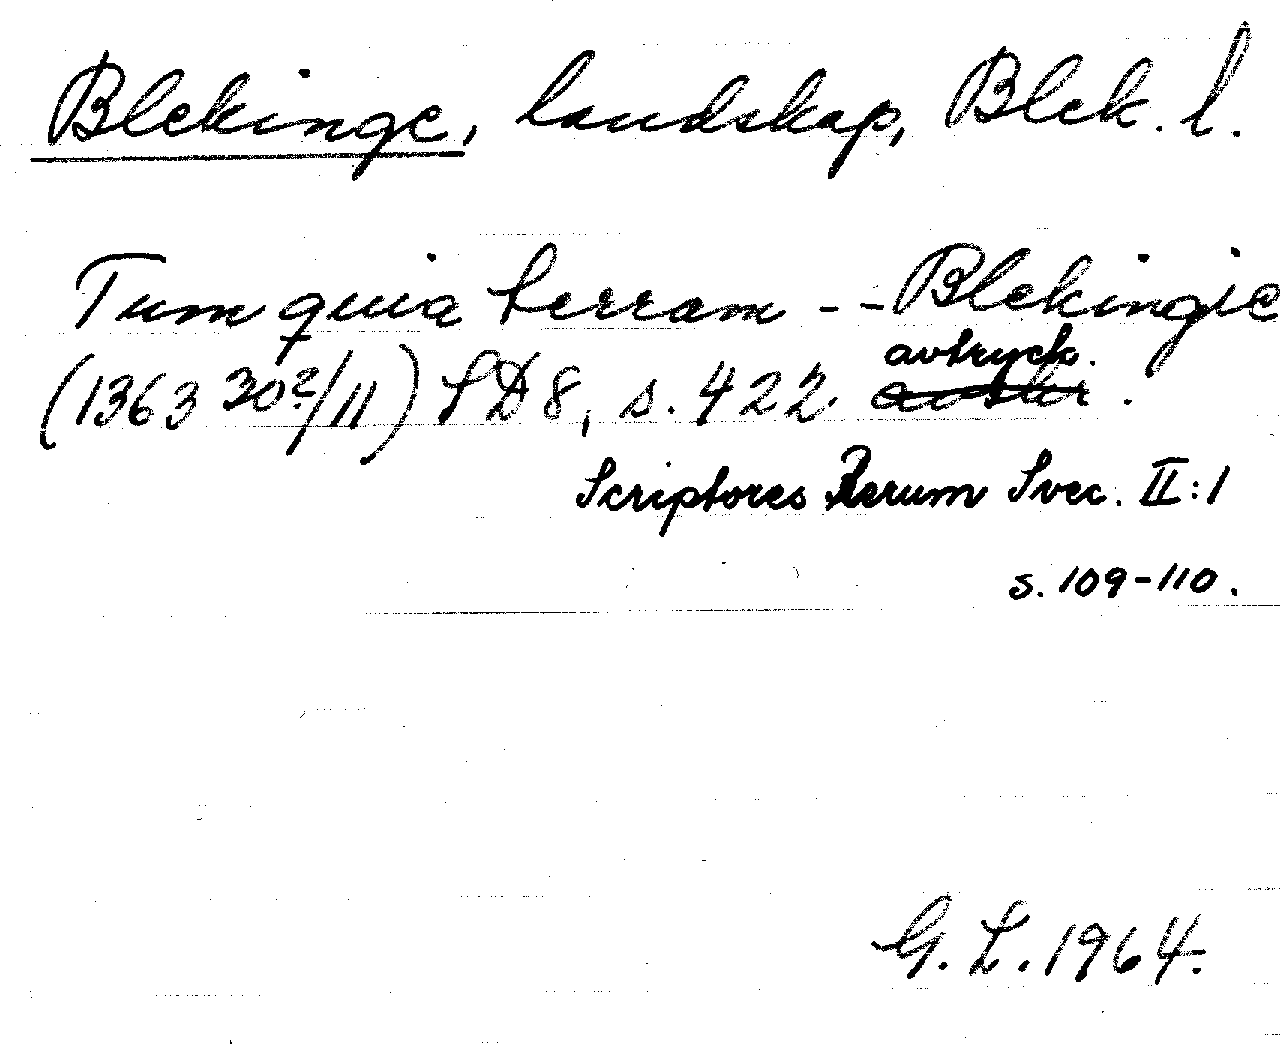 Blekinge, landskap, Blek. l.
Tum quia terram - - Blekingie
avtryck.
(1363 30?/11) SD 8, s. 422 .
Scriptores Rerum Svec. II:1
s. 109-110.
G. L. 1964.